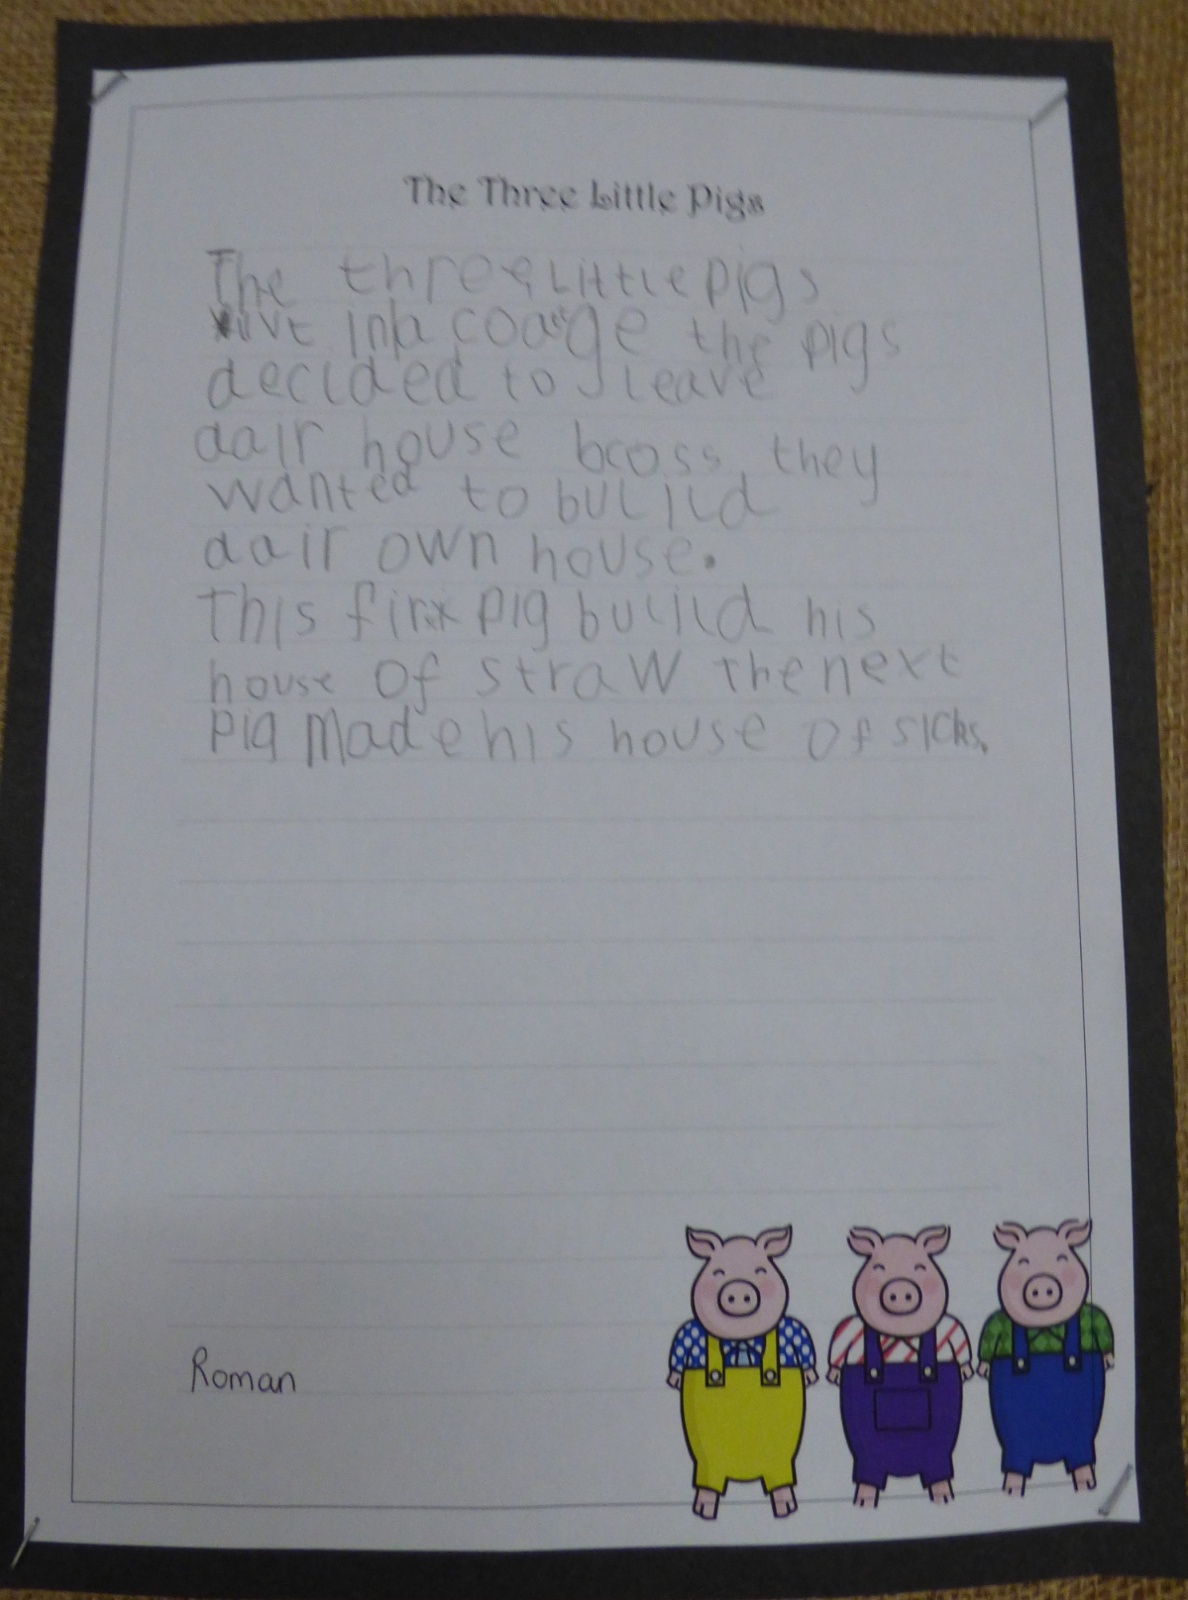 The Three Little Pigs
The three Little pigs
live in a coatge the pigs
decided to leave
dair house bcoss they
wanted to buliild
dair own house.
This firx pig buliild his
house of straw the next
pig made his house of sicks.
Roman